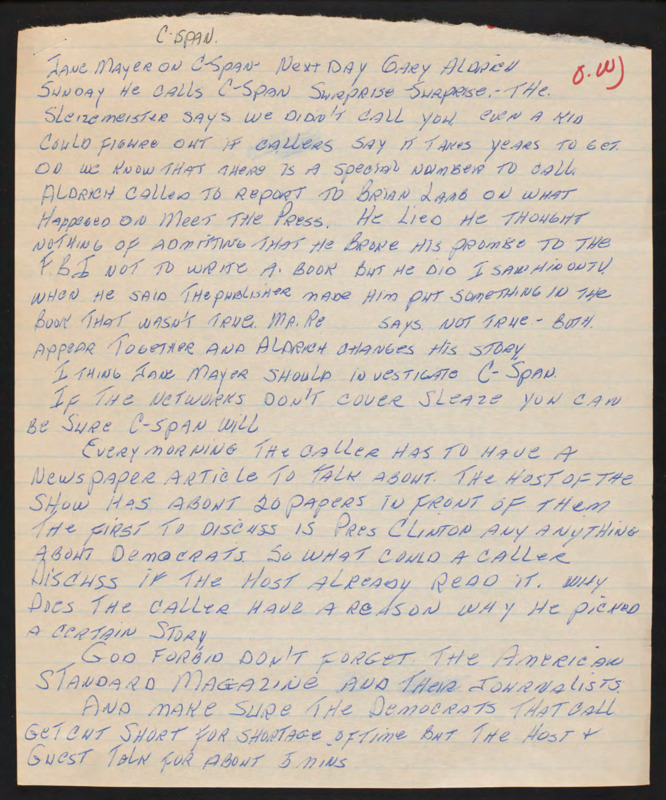 C-SPAN.
O.W)
JANE MAYER ON C-SPAN- NEXT DAY GARY ALDRICH
SUNDAY HE CALLS C-SPAN SURPRISE SURPRISE.- THE.
SLEIZEMEISTER SAYS WE DIDN'T CALL YOU EVEN A KID
COULD FIGURE OUT IF CALLERS SAY IT TAKES YEARS TO GET.
ON WE KNOW THAT THERE IS A SPECIAL NUMBER TO CALL.
ALDRICH CALLED TO REPORT TO BRIAN LAMB ON WHAT
HAPPENED ON MEET THE PRESS. HE LIED HE THOUGHT
NOTHING OF ADMITTING THAT HE BROKE HIS PROMISE TO THE
F.B.I NOT TO WRITE A. BOOK BUT HE DID I SAW HIM ON TV
WHEN HE SAID THE PUBLISHER MADE HIM PUT SOMETHING IN THE
BOOK THAT WASN'T TRUE. MR. RE SAYS. NOT TRUE - BOTH.
APPEAR TOGETHER AND ALDRICH CHANGES HIS STORY
I THING JANE MAYER SHOULD INVESTIGATE C-SPAN.
IF THE NETWORKS DON'T COVER SLEAZE YOU CAN
BE SURE C-SPAN WILL
EVERY MORNING THE CALLER HAS TO HAVE A
NEWSPAPER ARTICLE TO TALK ABOUT. THE HOST OF THE
SHOW HAS ABOUT 20 PAPERS IN FRONT OF THEM
THE FIRST TO DISCUSS IS PRES CLINTON ANY ANYTHING
ABOUT DEMOCRATS. SO WHAT COULD A CALLER
DISCUSS IF THE HOST ALREADY READ IT. WHY
DOES THE CALLER HAVE A REASON WHY HE PICKED
A CERTAIN STORY
GOD FORBID DON'T FORGET. THE AMERICAN
STANDARD MAGAZINE AND THEIR JOURNALISTS.
AND MAKE SURE THE DEMOCRATS THAT CALL
GET CUT SHORT FOR SHORTAGE OF TIME BUT THE HOST +
GUEST TALK FOR ABOUT 5 MINS